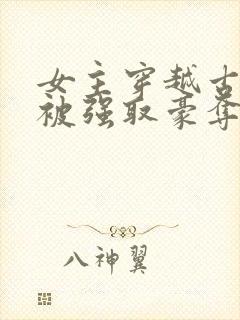 女主穿越古
被强取豪夺
八神翼